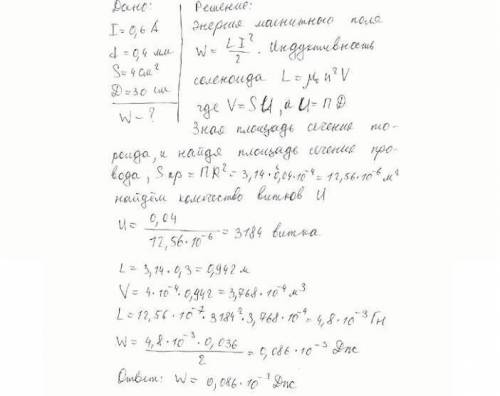 Дано:
I = 0,6 А
d = 0,4 мм
S = 4 см²
D = 30 см
W - ?
Решение:
Энергия магнитного поля
W = LI²/2. Индуктивность
соленоида L = μ₀ n² V
где V = Sℓ, а ℓ = ПД
Зная площадь сечение то-
роида, и найдя площадь сечение про-
вода, Sпр = ПR² = 3,14·0,04·10⁻⁴ = 12,56·10⁻⁶ м²
найдём количество витков И
И = 0,04/12,56·10⁻⁶ = 3184 витка
L = 3,14·0,3 = 0,942 м
V = 4·10⁻⁴·0,942 = 3,768·10⁻⁴ м³
L = 12,56·10⁻⁷·3184²·3,768·10⁻⁴ = 4,8·10⁻³ Гн
W = 4,8·10⁻³·0,036/2 = 0,086·10⁻³ Дж
Ответ: W = 0,086·10⁻³ Дж